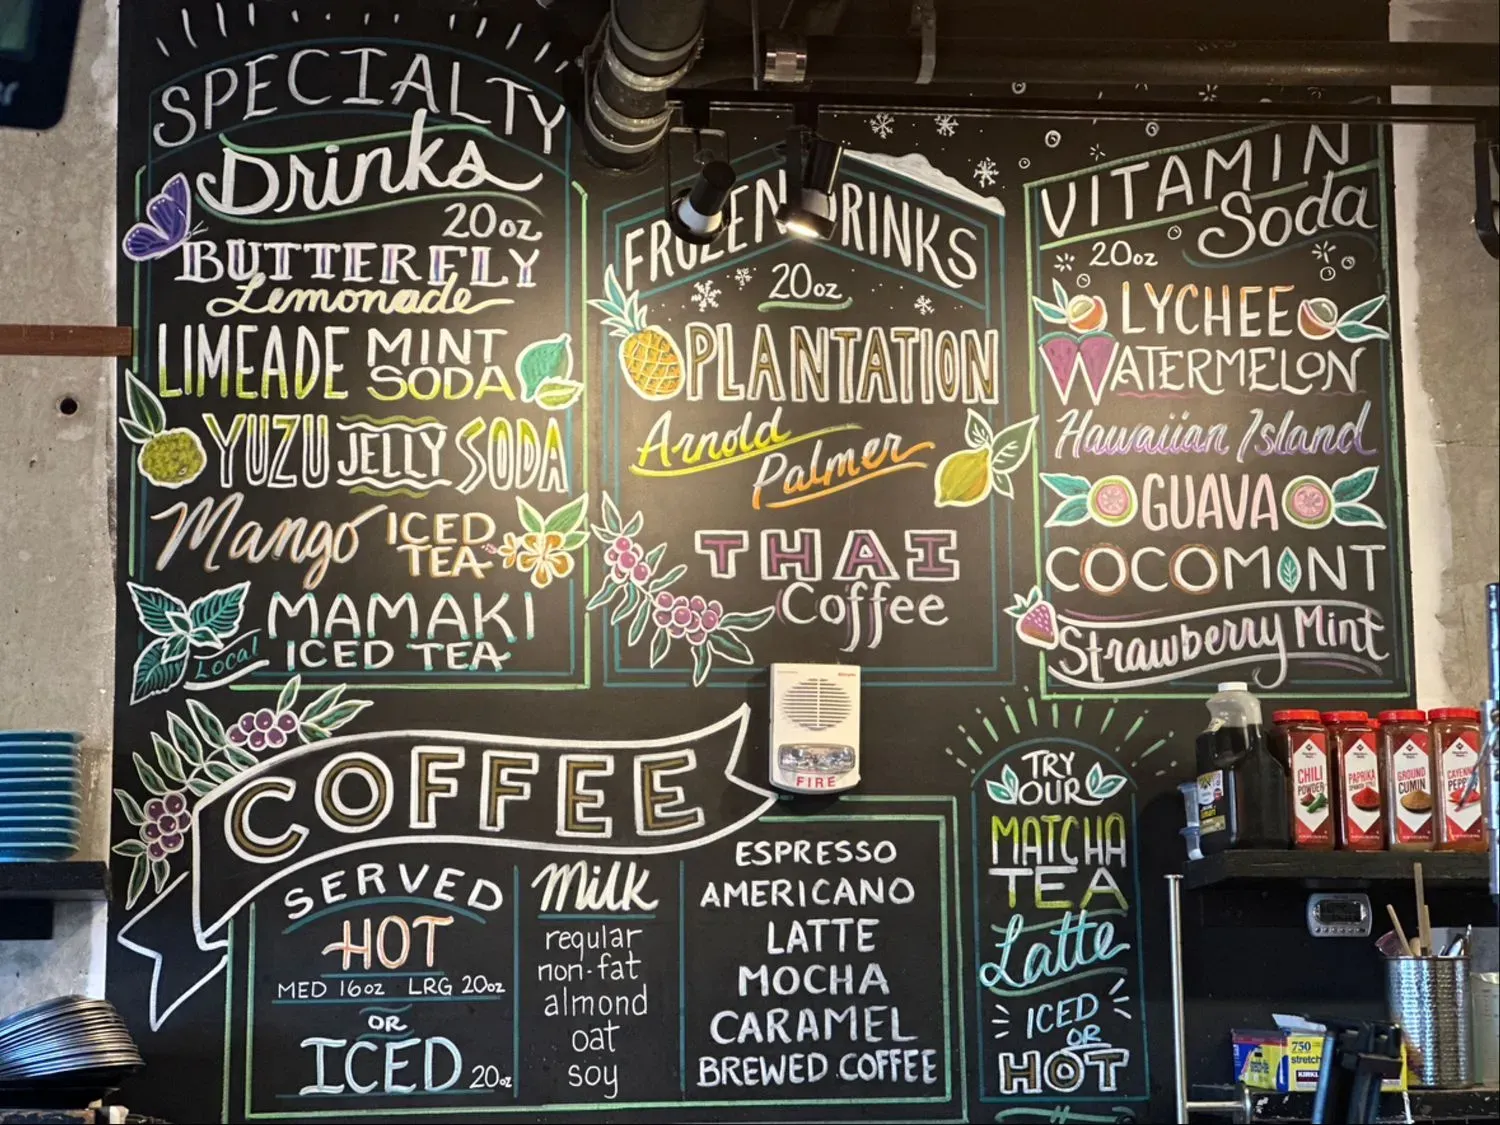 SPECIALTY
Drinks
20oz
BUTTERFLY
Lemonade
LIMEADE MINT SODA
YUZU JELLY SODA
Mango ICED TEA
Local MAMAKI ICED TEA
FROZEN DRINKS
20oz
PLANTATION
Arnold
Palmer
THAI
Coffee
VITAMIN
Soda
20oz
LYCHEE
WATERMELON
Hawaiian Island
GUAVA
COCOMINT
Strawberry Mint
COFFEE
SERVED
HOT
MED 16oz LRG 20oz
OR
ICED 20oz
Milk
regular
non-fat
almond
oat
soy
ESPRESSO
AMERICANO
LATTE
MOCHA
CARAMEL
BREWED COFFEE
FIRE
TRY
OUR
MATCHA
TEA
Latte
ICED
OR
HOT
CHILI
POWDER
PAPRIKA
GROUND
CUMIN
CAYENNE
PEPPER
750
stretch